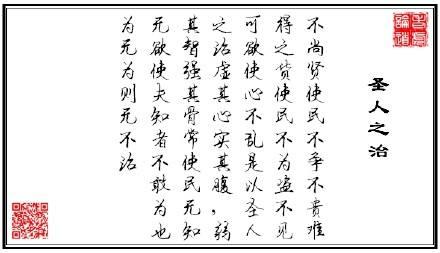 圣人之治
不尚贤使民不争不贵难
得之货使民不为盗不见
可欲使心不乱是以圣人
之治虚其心实其腹，弱
其智强其骨常使民无知
无欲使夫知者不敢为也
为无为则无不治